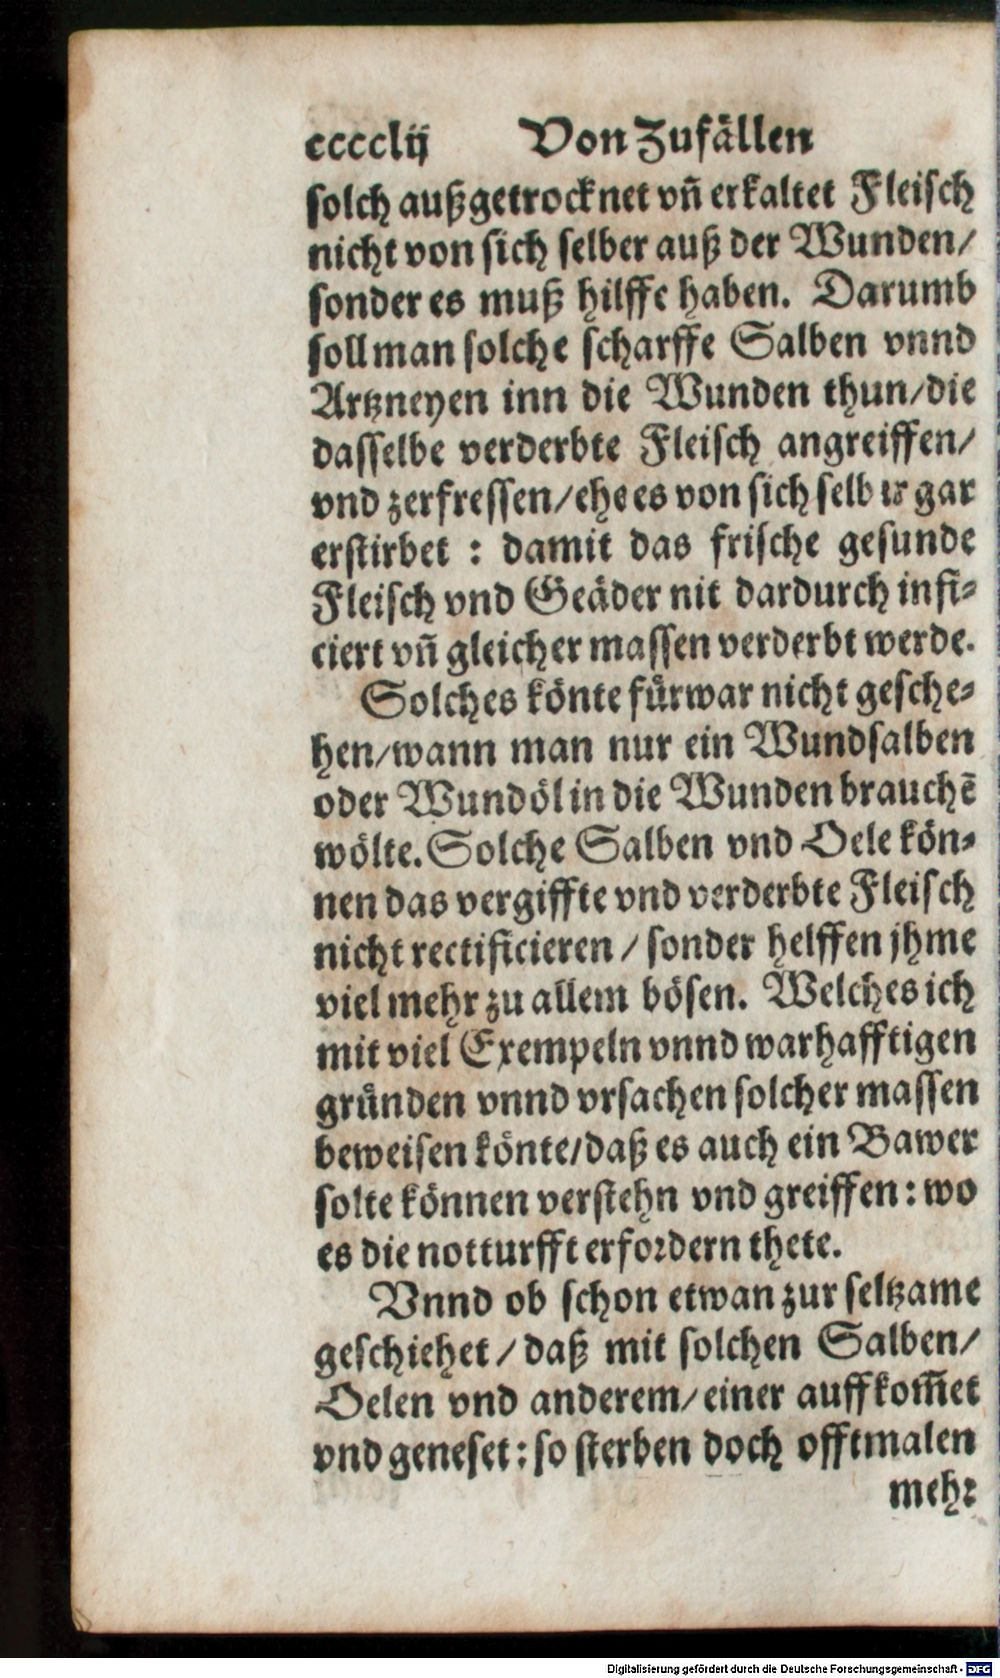 cccclij Von Zufällen
solch außgetrocknet vñ erkaltet Fleisch
nicht von sich selber auß der Wunden/
sonder es muß hilffe haben. Darumb
soll man solche scharffe Salben vnnd
Artzneyen inn die Wunden thun/die
dasselbe verderbte Fleisch angreiffen/
vnd zerfressen/ehe es von sich selber gar
erstirbet : damit das frische gesunde
Fleisch vnd Geäder nit dardurch infi-
ciert vñ gleicher massen verderbt werde.
Solches könte fürwar nicht gesche-
hen/wann man nur ein Wundsalben
oder Wundöl in die Wunden brauchē
wölte. Solche Salben vnd Oele kön-
nen das vergiffte vnd verderbte Fleisch
nicht rectificieren / sonder helffen jhme
viel mehr zu allem bösen. Welches ich
mit viel Exempeln vnnd warhafftigen
gründen vnnd vrsachen solcher massen
beweisen könte/daß es auch ein Bawer
solte können verstehn vnd greiffen: wo
es die notturfft erfordern thete.
Vnnd ob schon etwan zur seltzame
geschiehet / daß mit solchen Salben/
Oelen vnd anderem/einer auffkom̃et
vnd geneset: so sterben doch offtmalen
mehr
Digitalisierung gefördert durch die Deutsche Forschungsgemeinschaft - DFG